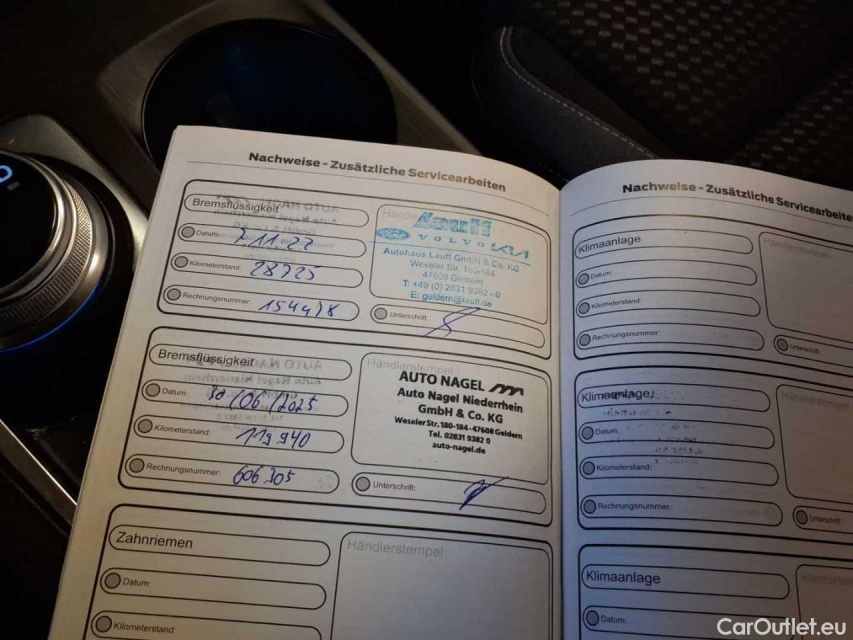 Nachweise - Zusätzliche Servicearbeiten
Bremsflüssigkeit
Datum:
Kilometerstand: 28925
Rechnungsnummer: 154418
Lauff
Ford VOLVO KIA
Autohaus Lauff GmbH & Co. KG
Weseler Str. 180-184
47608 Geldern
T: +49 (0) 2831 9382 - 0
E: geldern@lauff.de
Unterschrift:
Bremsflüssigkeit
Datum: 30/06/2025
Kilometerstand: 119940
Rechnungsnummer: 606305
Händlerstempel
AUTO NAGEL
Auto Nagel Niederrhein
GmbH & Co. KG
Weseler Str. 180-184 - 47608 Geldern
Tel. 02831 9382 0
auto-nagel.de
Unterschrift:
Zahnriemen
Datum:
Kilometerstand:
Händlerstempel
Nachweise - Zusätzliche Servicearbeite
Klimaanlage
Datum:
Kilometerstand:
Rechnungsnummer:
Unterschrift:
Klimaanlage
Datum:
Kilometerstand:
Rechnungsnummer:
Unterschrift:
Klimaanlage
Datum:
CarOutlet.eu